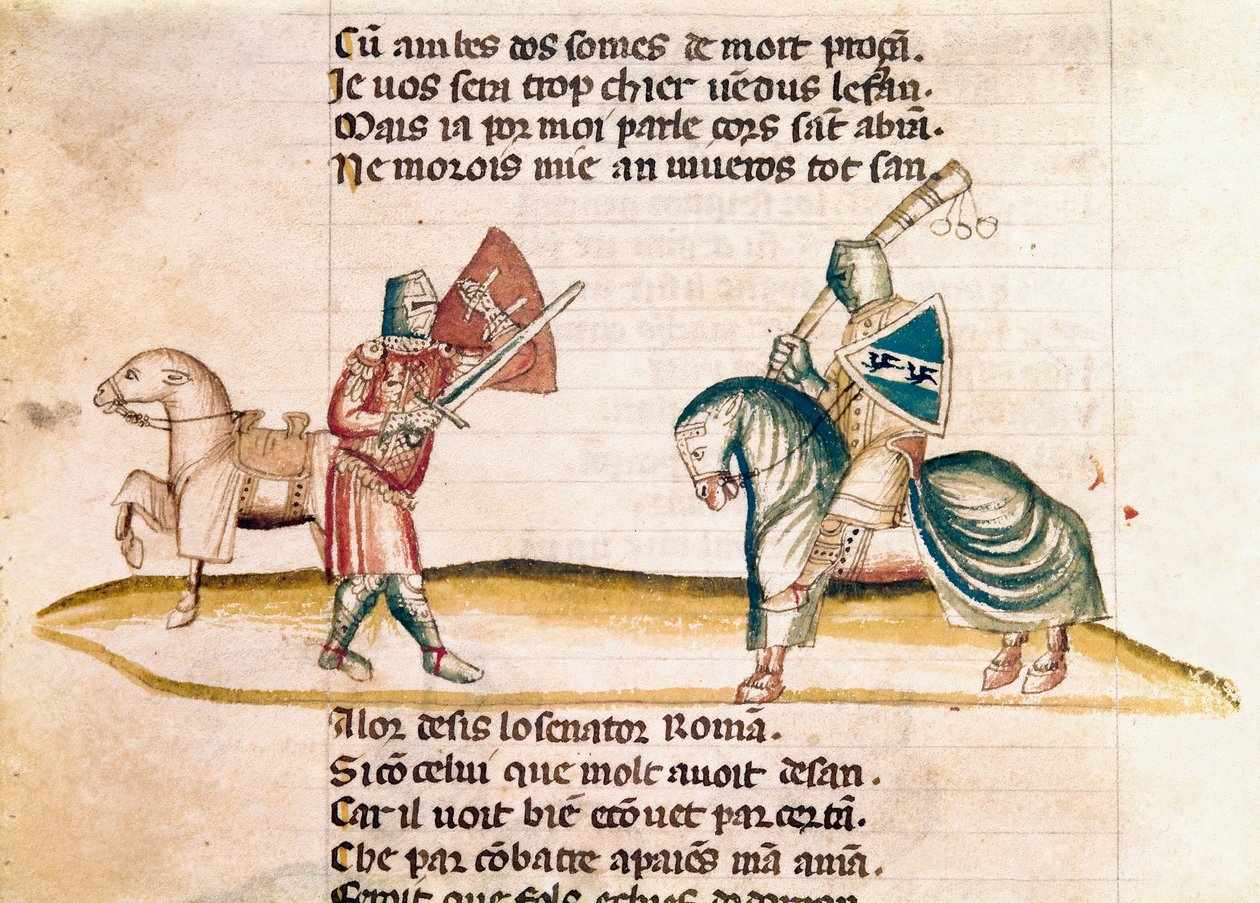 Cū ambes dos somes de mort proçā.
Je uos sera trop chier uēdus lesan.
Mais ia por moi parle cors sāt abrā.
Ne morois mie an uiueros tot san.
Alor desis lo senator Romā.
Si cō celui que molt auoit desan.
Car il uoit biē ecōuet par certā.
Che par cōbatre apaiēs mā amā.
que fols